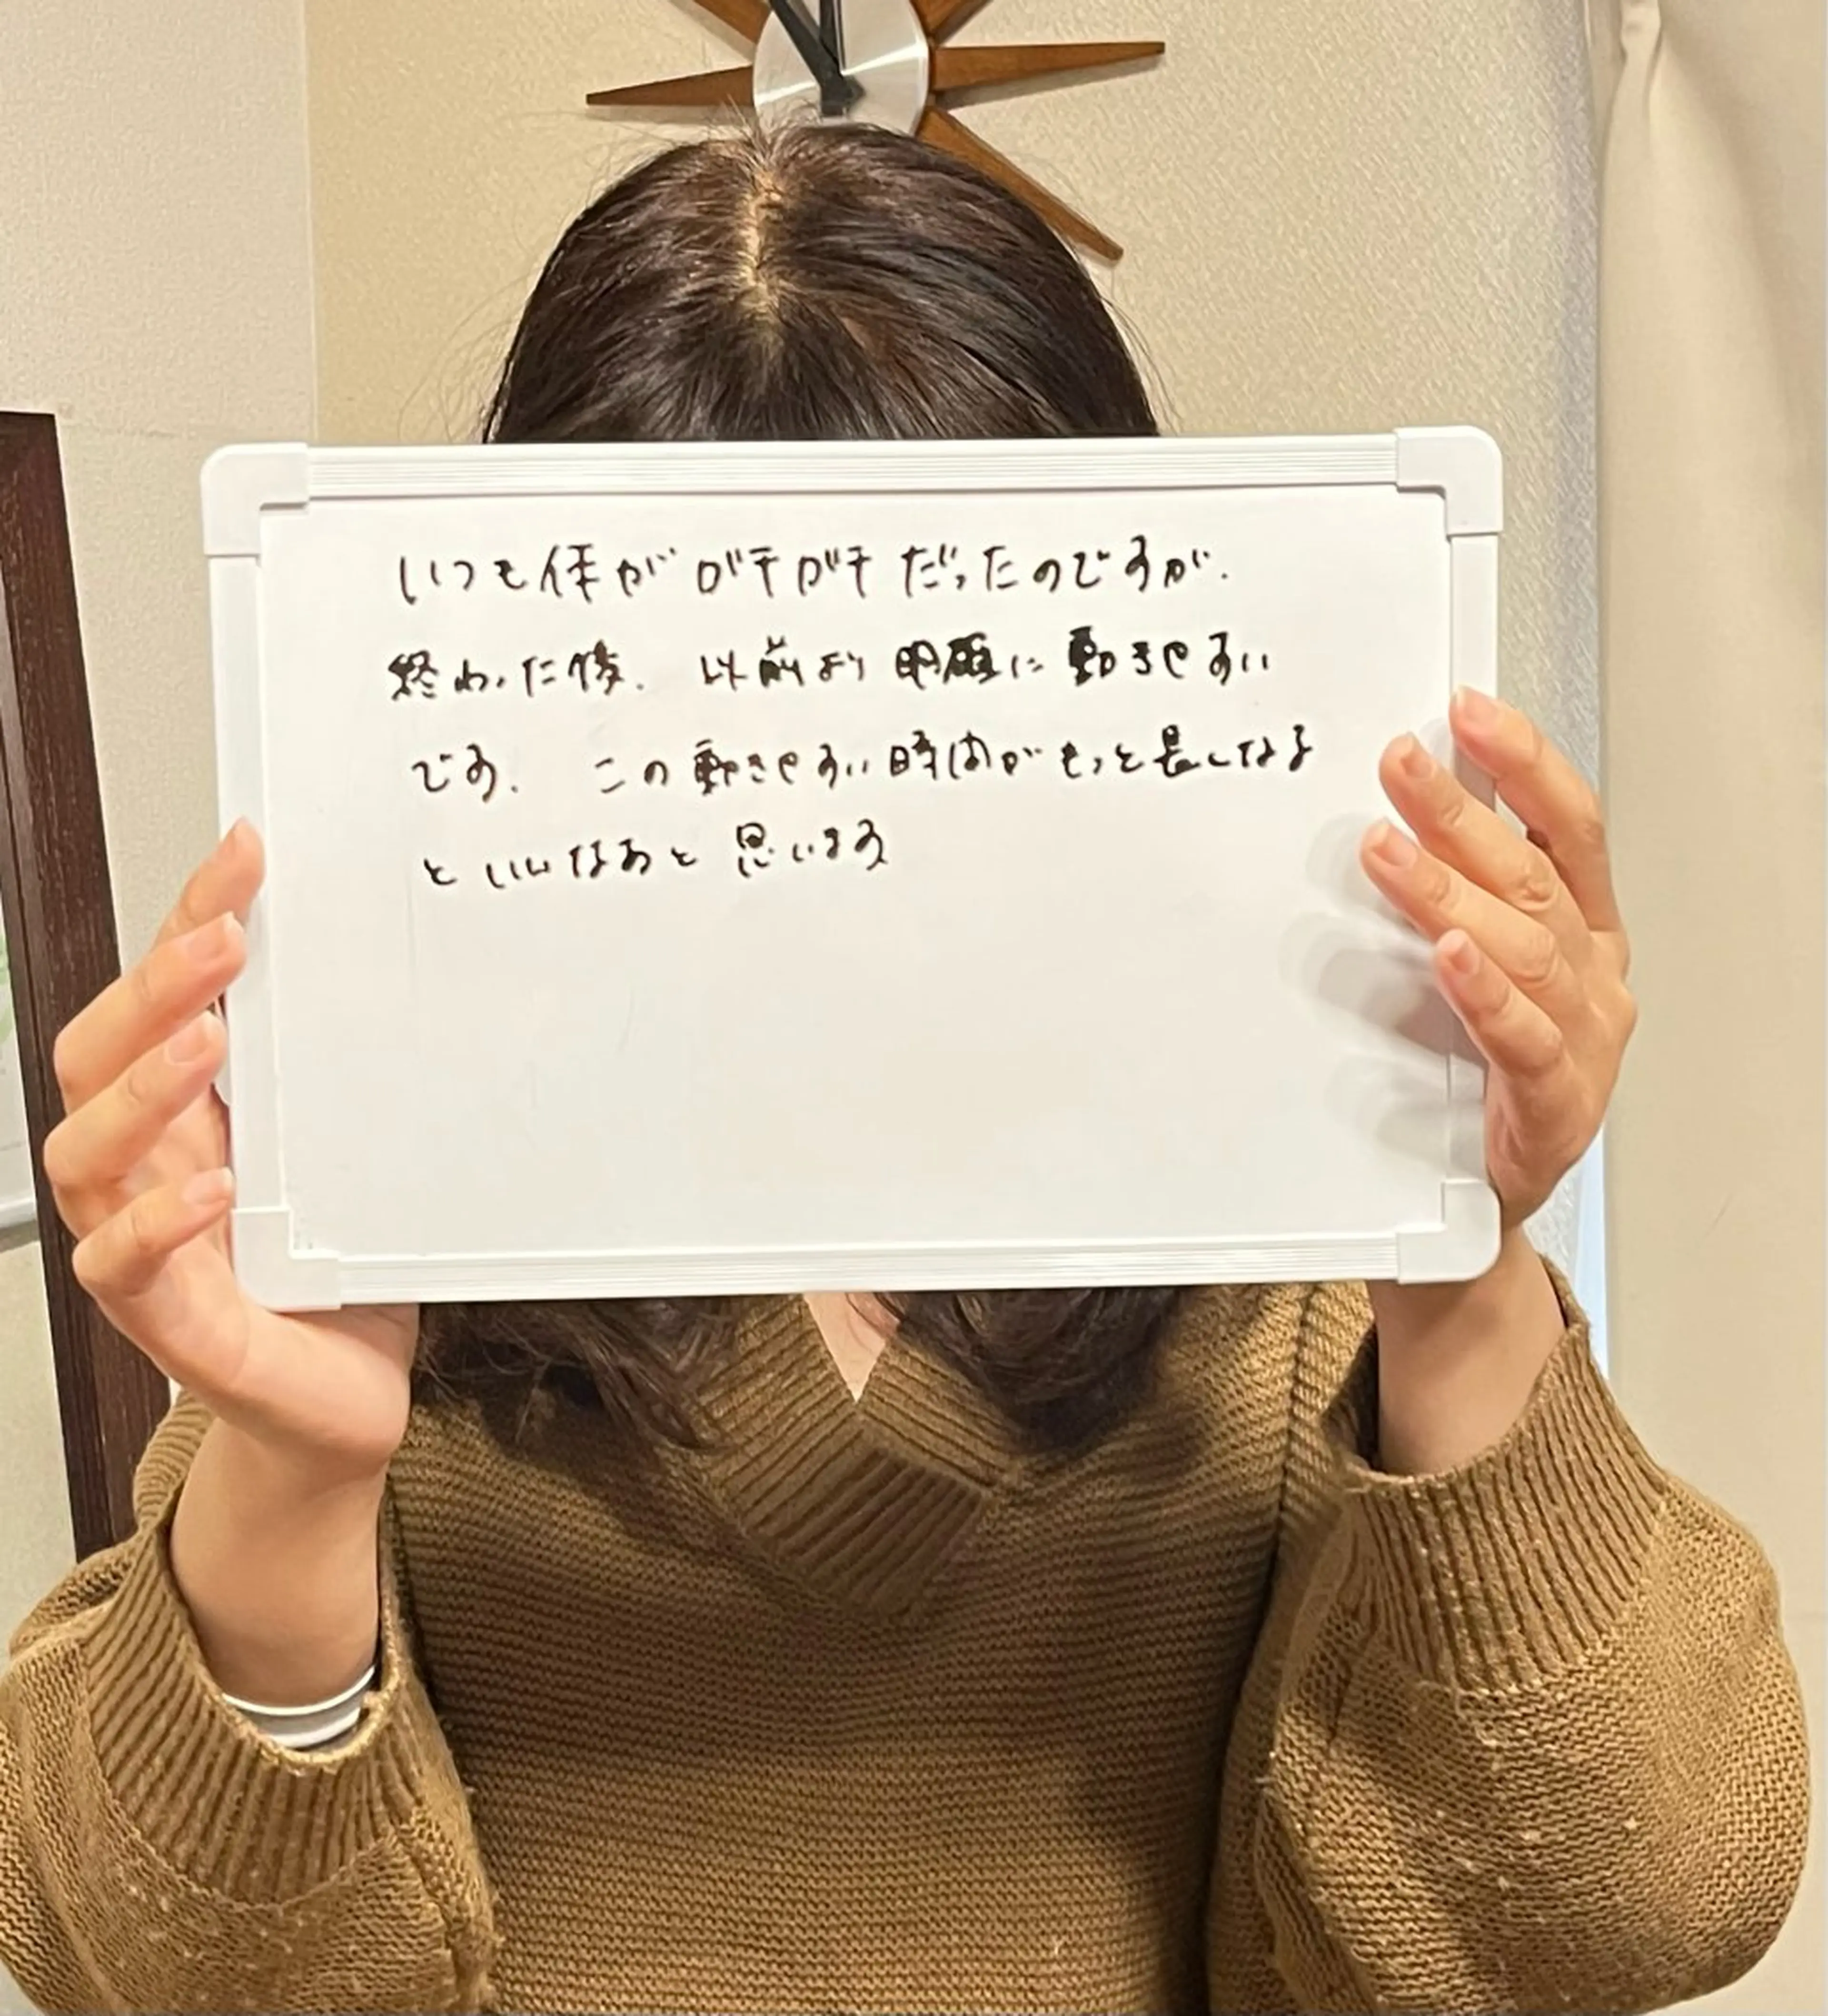 いつも体がガチガチだったのですが.
終わった後. 以前より明顕に動きやすい
です. この動きやすい時間がもっと長くなる
といいなあと思います